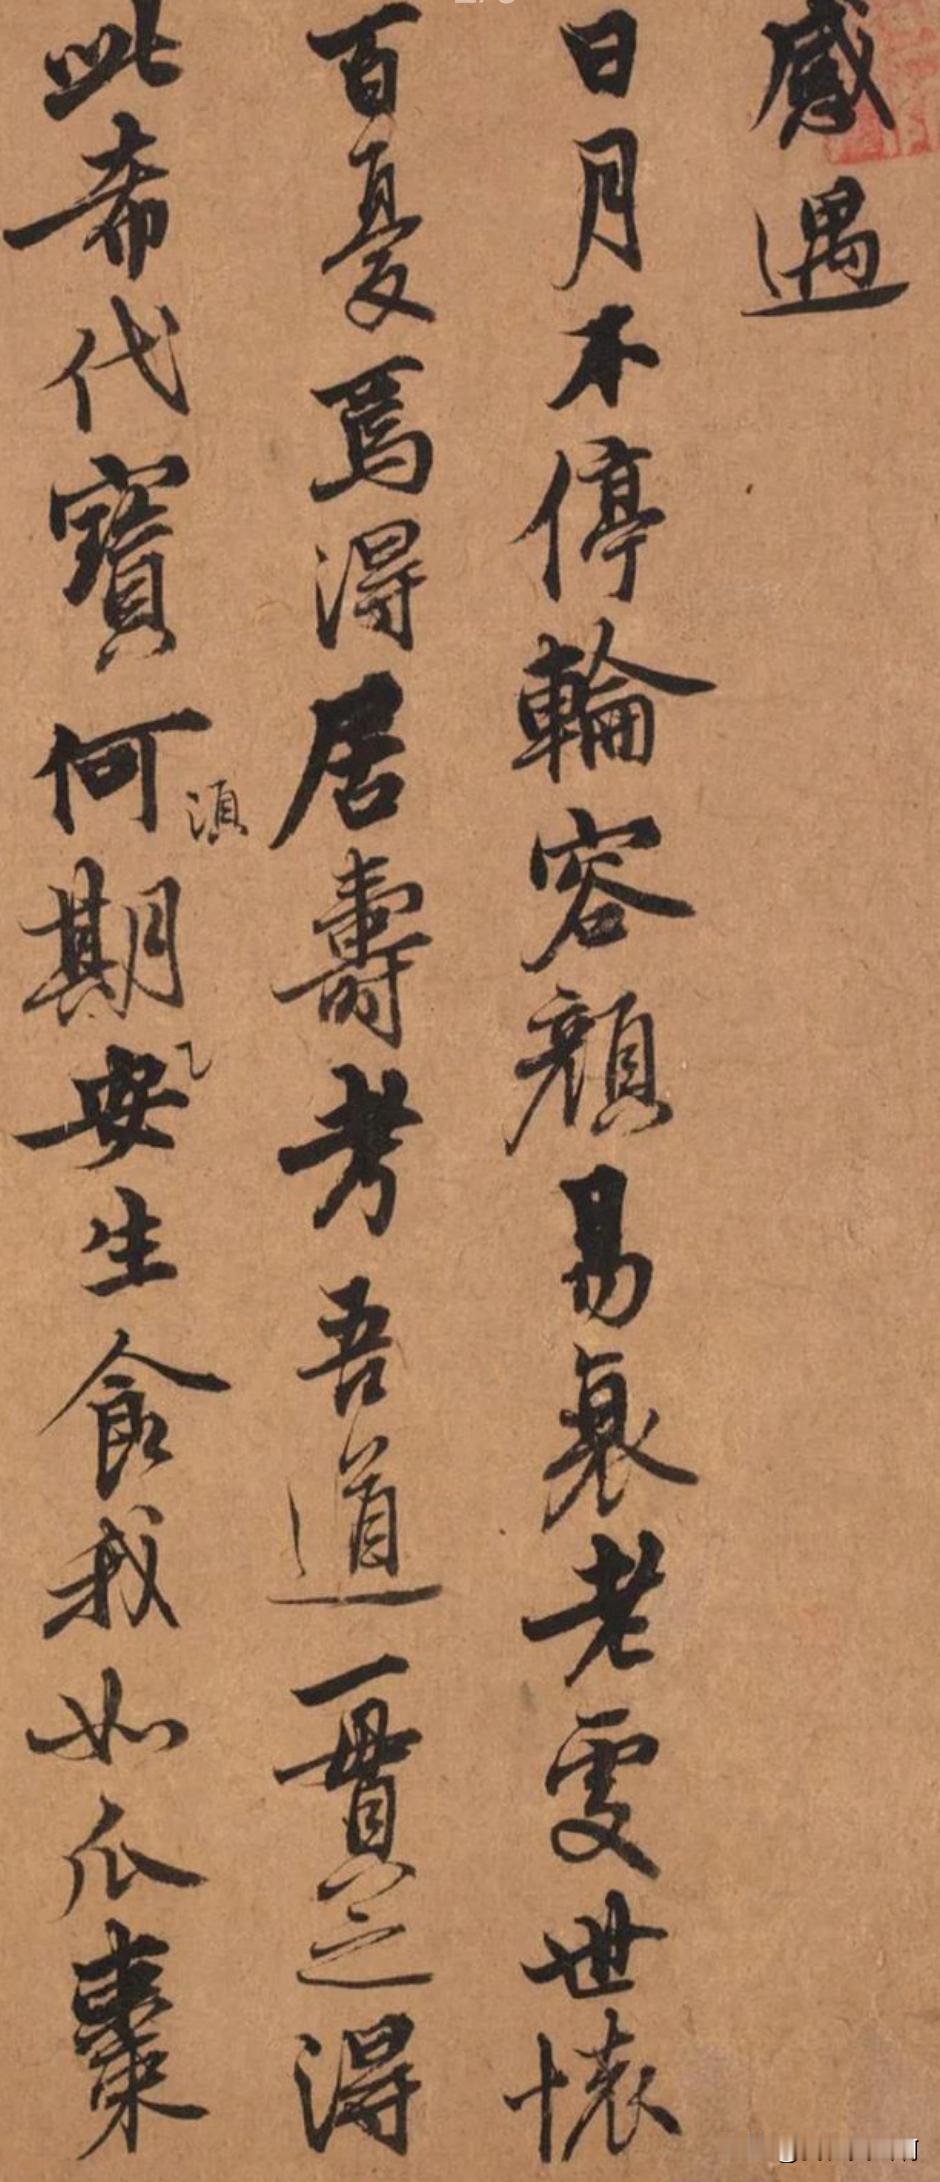 感遇
日月不停輪容顏易衰老處世懷
百憂焉得居壽考吾道一貫之得
此希代寶何期安生食我如瓜棗
須